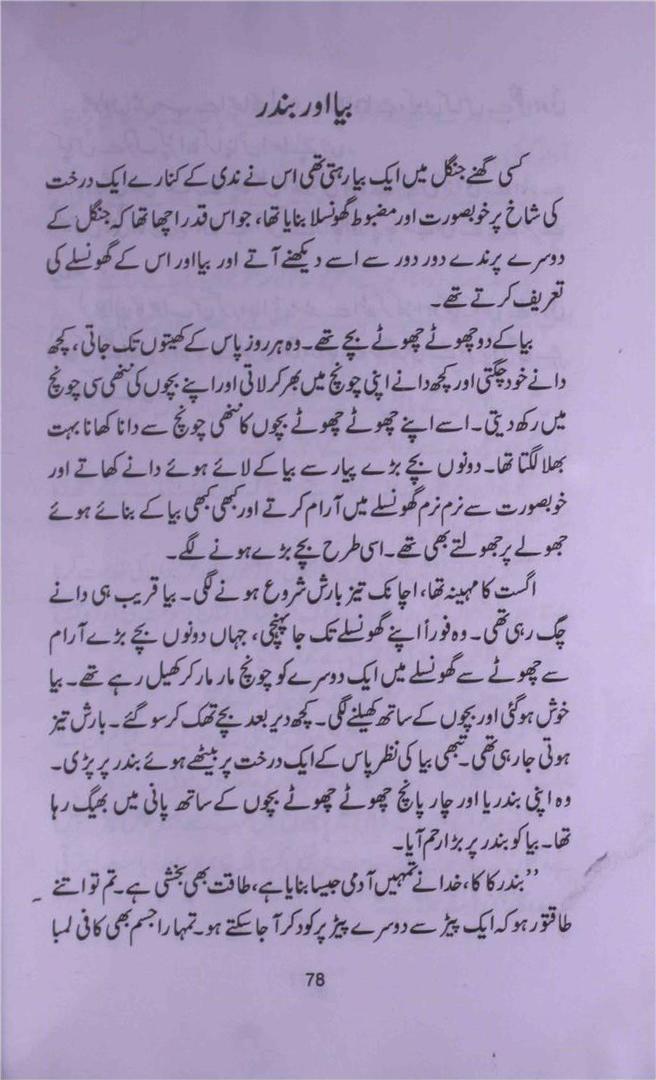 بیا اور بندر
کسی گھنے جنگل میں ایک بیا رہتی تھی اس نے ندی کے کنارے ایک درخت
کی شاخ پر خوبصورت اور مضبوط گھونسلا بنایا تھا، جو اس قدر اچھا تھا کہ جنگل کے
دوسرے پرندے دور دور سے اسے دیکھنے آتے اور بیا اور اس کے گھونسلے کی
تعریف کرتے تھے۔
بیا کے دو چھوٹے چھوٹے بچے تھے۔ وہ ہر روز پاس کے کھیتوں تک جاتی، کچھ
دانے خود چگتی اور کچھ دانے اپنی چونچ میں بھر کر لاتی اور اپنے بچوں کی ننھی سی چونچ
میں رکھ دیتی۔ اسے اپنے چھوٹے چھوٹے بچوں کا ننھی چونچ سے دانا کھانا بہت
بھلا لگتا تھا۔ دونوں بچے بڑے پیار سے بیا کے لائے ہوئے دانے کھاتے اور
خوبصورت سے نرم نرم گھونسلے میں آرام کرتے اور کبھی کبھی بیا کے بنائے ہوئے
جھولے پر جھولتے بھی تھے۔ اسی طرح بچے بڑے ہونے لگے۔
اگست کا مہینہ تھا، اچانک تیز بارش شروع ہونے لگی۔ بیا قریب ہی دانے
چگ رہی تھی۔ وہ فوراً اپنے گھونسلے تک جا پہنچی، جہاں دونوں بچے بڑے آرام
سے چھوٹے سے گھونسلے میں ایک دوسرے کو چونچ مار مار کر کھیل رہے تھے۔ بیا
خوش ہو گئی اور بچوں کے ساتھ کھیلنے لگی۔ کچھ دیر بعد بچے تھک کر سو گئے۔ بارش تیز
ہوتی جا رہی تھی۔ تبھی بیا کی نظر پاس کے ایک درخت پر بیٹھے ہوئے بندر پر پڑی۔
وہ اپنی بندریا اور چار پانچ چھوٹے چھوٹے بچوں کے ساتھ پانی میں بھیگ رہا
تھا۔ بیا کو بندر پر بڑا رحم آیا۔
”بندر کاکا، خدا نے تمہیں آدمی جیسا بنایا ہے، طاقت بھی بخشی ہے۔ تم تو اتنے
طاقتور ہو کہ ایک پیڑ سے دوسرے پیڑ پر کود کر آ جا سکتے ہو۔ تمہارا جسم بھی کافی لمبا
78